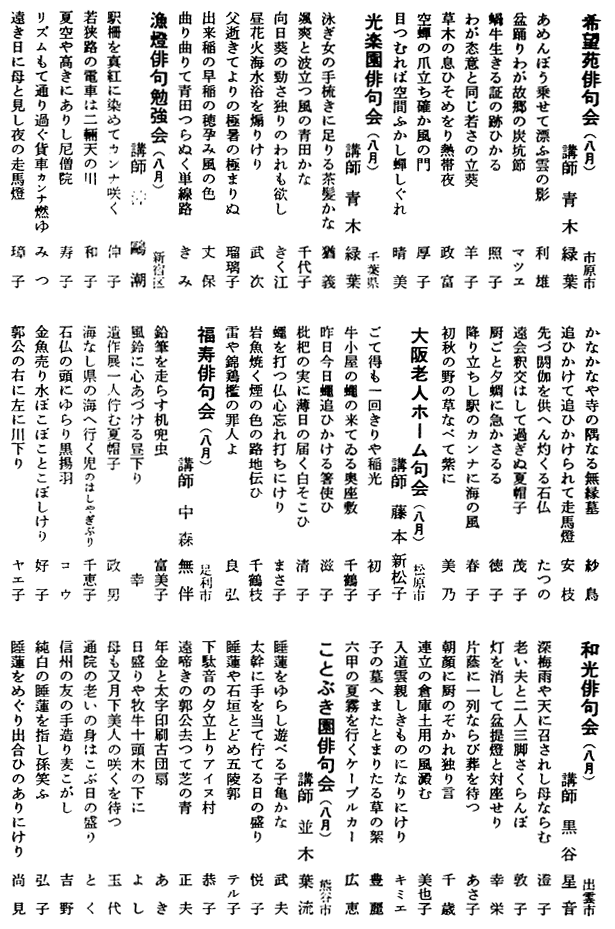 希望苑俳句会（八月）
市原市
講師 青木 緑葉
あめんぼう乗せて漂ふ雲の影 利雄
盆踊りわが故郷の炭坑節 マツヱ
蝸牛生きる証の跡ひかる 照子
わが恣意と同じ若さの立葵 羊子
草木の息ひそめをり熱帯夜 政富
空蟬の爪立ち確か風の門 厚子
目つむれば空間ふかし蟬しぐれ 晴美
光楽園俳句会（八月）
千葉県
講師 青木 緑葉
泳ぎ女の手梳きに足りる茶髪かな 猶義
颯爽と波立つ風の青田かな 千代子
向日葵の勁さ独りのわれも欲し きく江
昼花火海水浴を煽りけり 武次
父逝きてよりの極暑の極まりぬ 瑠璃子
出来稲の早稲の穂孕み風の色 丈保
曲り曲りて青田つらぬく単線路 きみ
漁燈俳句勉強会（八月）
新宿区
講師 鷗潮
駅柵を真紅に染めてカンナ咲く 伸子
若狭路の電車は二輛天の川 和子
夏空や高きにあり尼僧院 寿子
リズムもて通り過ぐ貨車カンナ燃ゆ みつ
遠き日に母と見し夜の走馬燈 璋子
かなかなかや寺の隅なる無縁墓 紗鳥
追ひかけて追ひかけられて走馬燈 安枝
先づ閼伽を供へん灼くる石仏 たつの
遠会釈交はして過ぎぬ夏帽子 茂子
厨ごと夕蜩に急かさるる 徳子
降り立ちし駅のカンナに海の風 春子
初秋の野の草なべて紫に 美乃
大阪老人ホーム句会（八月）
松原市
講師 藤本 新松子
ごて得も一回きりや稲光 初子
牛小屋の蠅の来てゐる奥座敷 千鶴子
昨日今日蠅追ひかける箸使ひ 滋子
枇杷の実に薄日の届く白そこひ 清子
蠅を打つ仏心忘れ打ちにけり まさ子
岩魚焼く煙の色の路地伝ひ 千鶴枝
雷や錦鶏檻の罪人よ 良弘
福寿俳句会（八月）
足利市
講師 中森 無伴
鉛筆を走らす机兜虫 富美子
風鈴に心あづける昼下り 幸
遺作展一人佇む夏帽子 政男
海なし県の海へ行く児のはしゃぎぶり 千恵子
石仏の頭にゆらり黒揚羽 コウ
金魚売り水ぽこぽことこぼしけり 好子
郭公の右に左に川下り ヤエ子
和光俳句会（八月）
出雲市
講師 黒谷 星音
深梅雨や天に召されし母ならむ 澄子
老い夫と二人三脚さくらんぼ 敦子
灯を消して盆提燈と対座せり 幸栄
片蔭に一列ならび葬を待つ あさ子
朝顔に厨のぞかれ独り言 千歳
連立の倉庫土用の風澱む 美也子
入道雲親しきものになりにけり キミエ
子の墓へまたとまりたる草の絮 豊麗
六甲の夏霧を行くケーブルカー 広恵
ことぶき園俳句会（八月）
熊谷市
講師 並木 葉流
睡蓮をゆらし遊べる子亀かな 武夫
太幹に手を当て佇てる日の盛り 悦子
睡蓮や石垣とどめ五陵郭 テル子
下駄音の夕立上りアイヌ村 恭子
遠啼きの郭公去つて芝の青 正夫
年金と太字印刷古団扇 あき
日盛りや牧牛十頭木の下に よし
母も又月下美人の咲くを待つ 玉代
通院の老いの身はこぶ日の盛り とく
信州の友の手造り麦こがし 吉野
純白の睡蓮を指し孫笑ふ 弘子
睡蓮をめぐり出合ひのありにけり 尚見